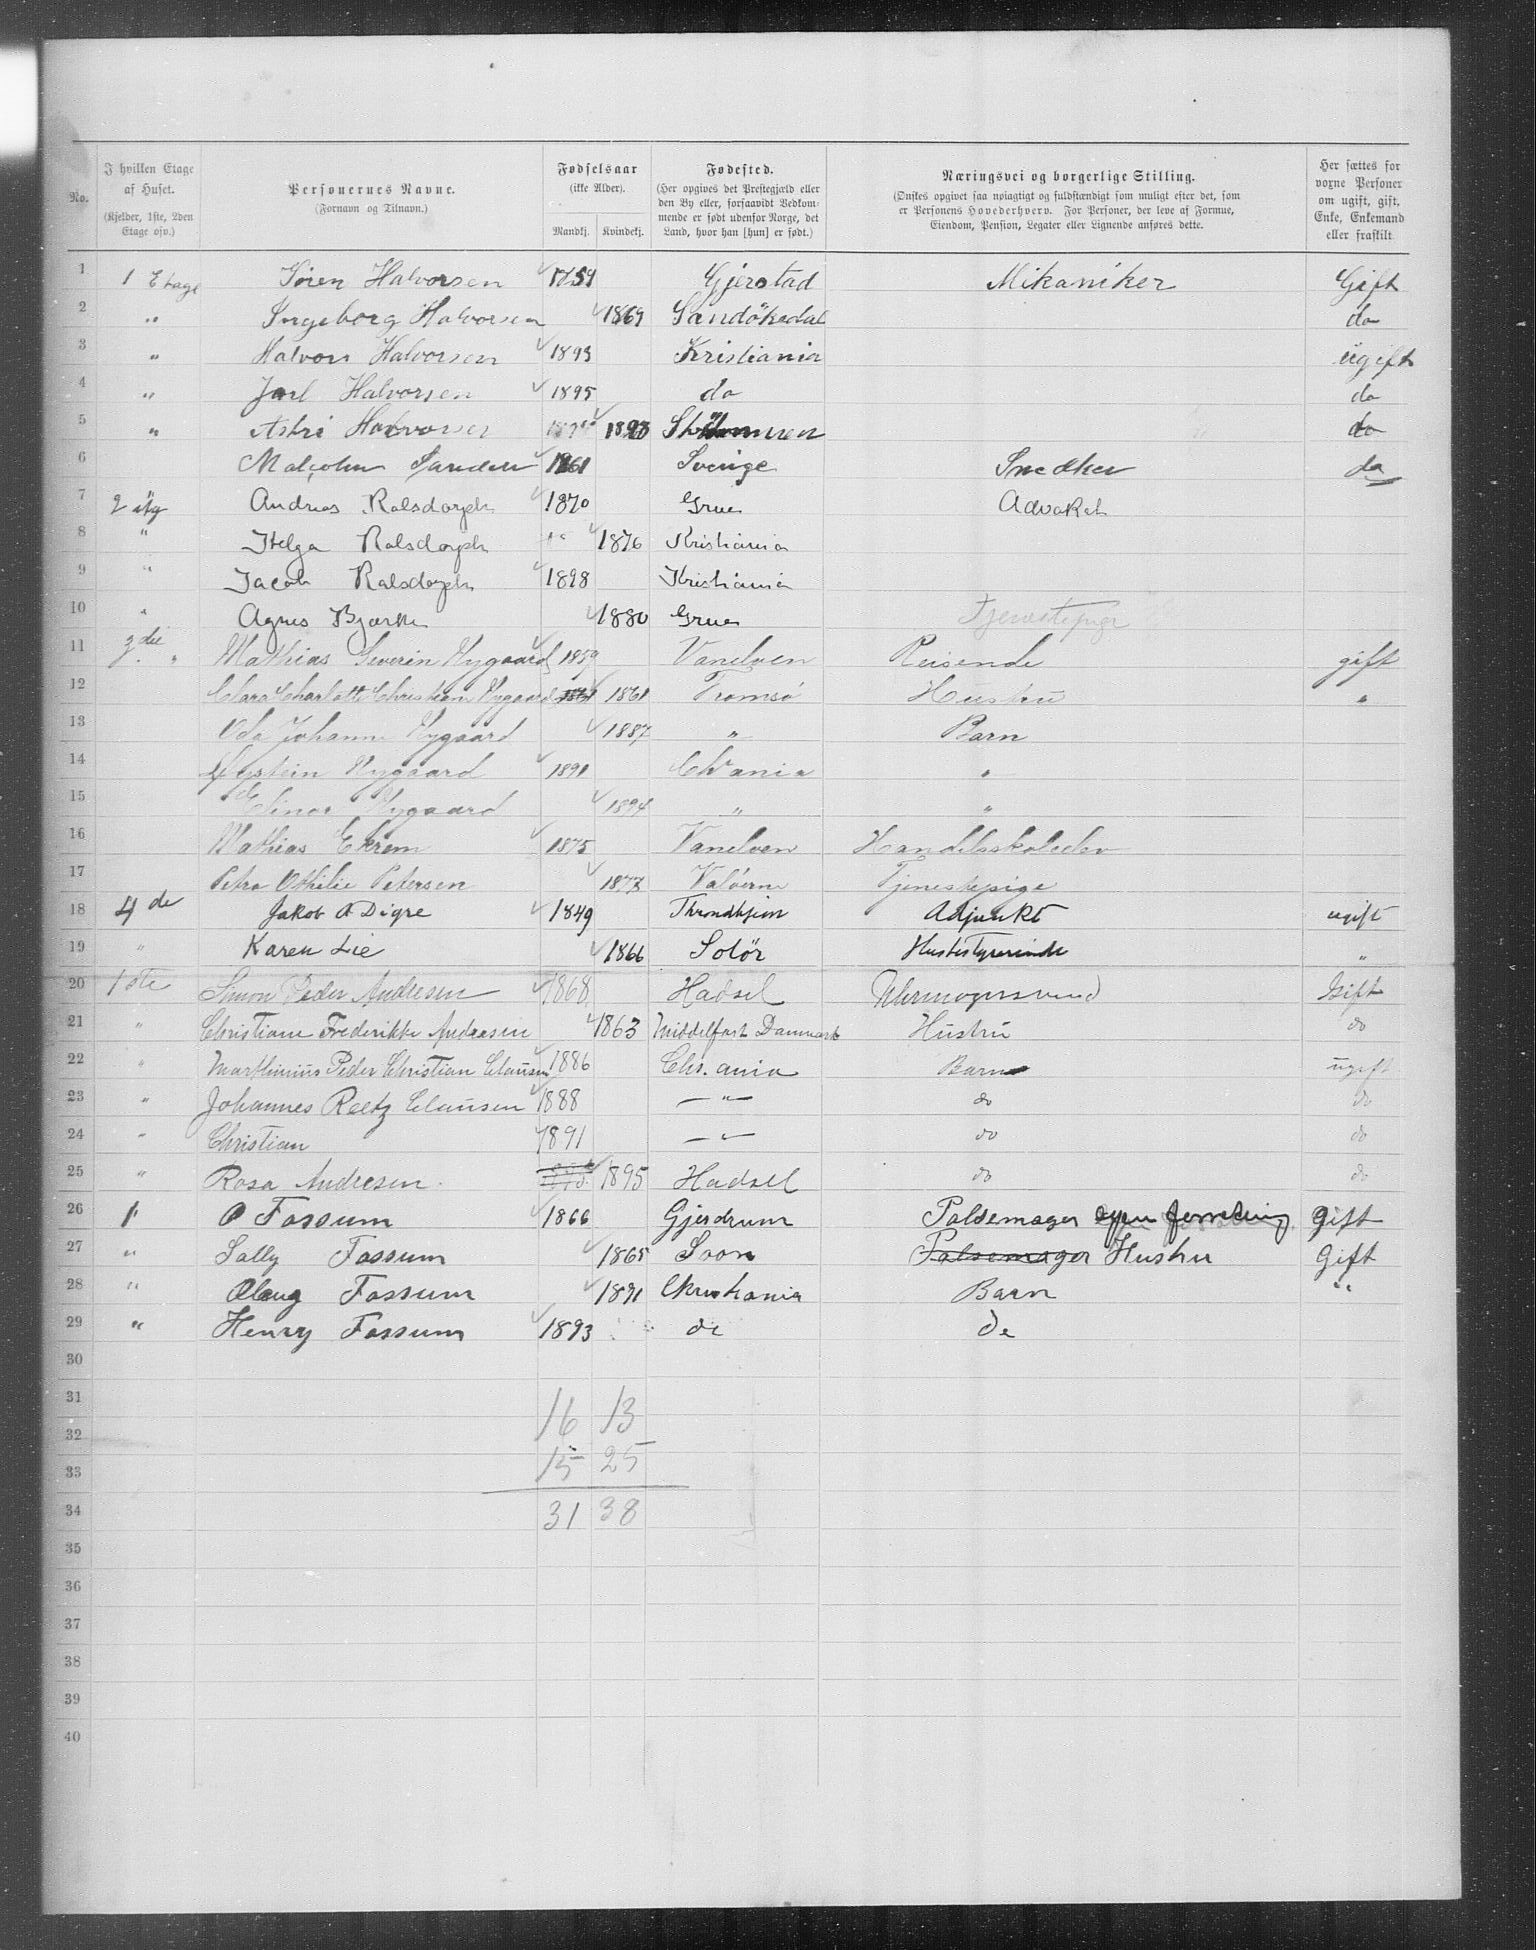 No. I hvilken Etage af Huset. (Kjelder, 1ste, 2den Etage osv.) Personernes Navne. (Fornavn og Tilnavn.) Fødselsaar (ikke Alder). Mandkj. Kvindekj. Fødested. (Her opgives det Prestegjæld eller den By eller, forsaavidt Vedkommende er født udenfor Norge, det Land, hvor han [hun] er født.) Næringsvei og borgerlige Stilling. (Ønskes opgivet saa nøiagtigt og fuldstændigt som muligt efter det, som er Personens Hovederhverv. For Personer, der leve af Formue, Eiendom, Pension, Legater eller Lignende anføres dette. Her sættes for voxne Personer om ugift, gift, Enke, Enkemand eller fraskilt
1 1 Etage Søren Halvorsen 1859 Gjerstad Mikaniker Gift
2 " Ingeborg Halvorsen 1869 Sandökedal do
3 " Halvor Halvorsen 1893 Kristiania ugift
4 " Jarl Halvorsen 1895 do do
5 " Astri Halvorsen 1893 do
6 Malcolm 1861 Sverige Snedker do
7 2 Andreas Ralsdorph 1870 Grue Advokat
8 " Helga Ralsdorph 1876 Kristiania
9 " Jacob Ralsdorph 1898 Kristiania
10 " Agnes Bjørke 1880 Grue Tjenestepige
11 3die " Mathias Severin Nygaard 1859 Vanelven Reisende gift
12 Clara Charlotte Christiane Nygaard 1861 Tromsø Hustru "
13 Oda Johanne Nygaard 1887 " Barn
14 Øystein Nygaard 1891 Chr ania "
15 Elinor Nygaard 1894 " "
16 Mathias Ekrem 1875 Vanelven Handelsskoleelev
17 Petra Othilie Petersen 1877 Valöerne Tjenestepige
18 4de Jakob A Digre 1849 Throndhjem Adjunkt ugift
19 " Karen Lie 1866 Solör Husbestyrerinde "
20 1ste Simon Peder Andresen 1868 Hadsel Uhrmagersvend Gift
21 " Christiane Frederikke Andresen 1863 Middelfart Danmark Hustru do
22 " Marthinius Peder Christian Clausen 1886 Chr. ania Barn ugift
23 " Johannes Reetz Clausen 1888 — " — do do
24 " Christian 1891 — " — do do
25 " Rosa Andresen 1895 Hadsel do do
26 1 O Fossum 1866 Gjerdrum Pølsemager egen forretning gift
27 " Sally Fossum 1865 Soon Pølsemager Hustru Gift
28 " Olaug Fossum 1891 Christiania Barn "
29 " Henry Fossum 1893 do do
30
31 16 13
32
33 15 25
34 31 38
35
36
37
38
39
40